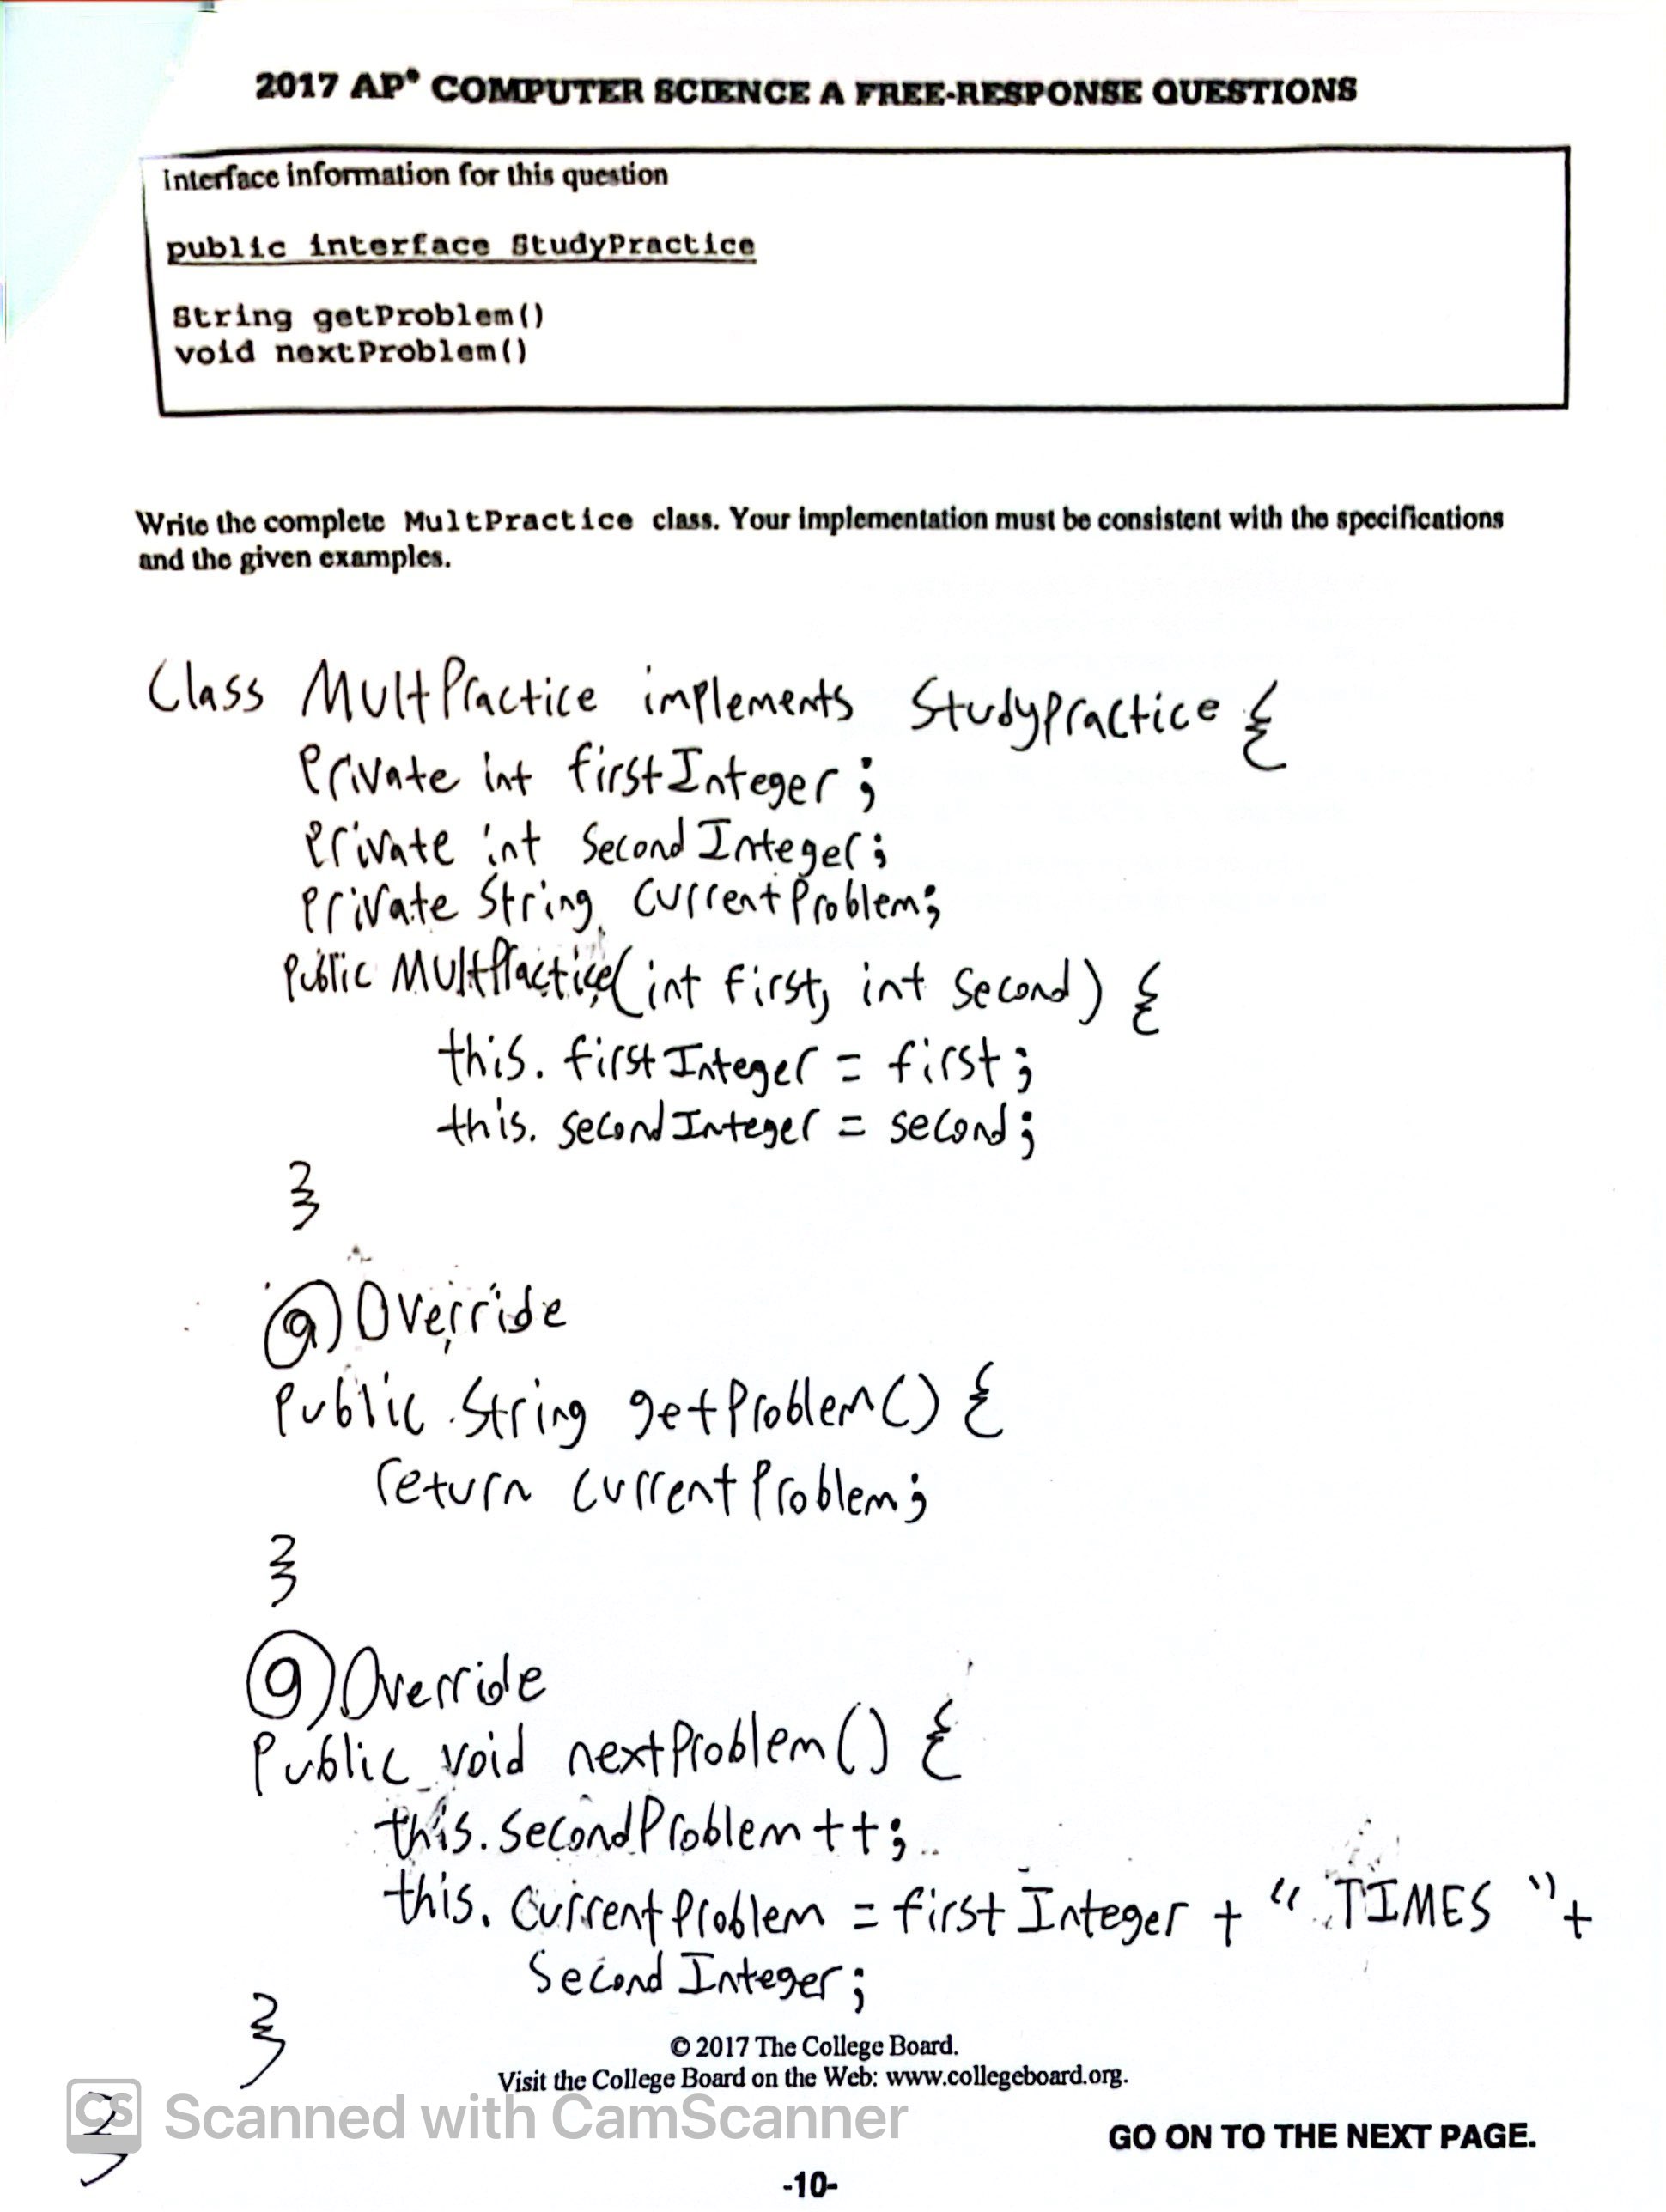 2017 AP® COMPUTER SCIENCE A FREE-RESPONSE QUESTIONS
Interface information for this question
public interface StudyPractice
String getProblem()
void nextProblem()
Write the complete MultPractice class. Your implementation must be consistent with the specifications
and the given examples.
Class MultPractice implements StudyPractice {
Private int firstInteger;
Private int secondInteger;
Private String currentProblem;
Public MultPractice(int first, int second) {
this.firstInteger = first;
this.secondInteger = second;
}
@Override
Public String getProblem() {
return currentProblem;
}
@Override
Public void nextProblem() {
this.secondProblem++;
this.currentProblem = firstInteger + " TIMES " +
SecondInteger;
}
© 2017 The College Board.
Visit the College Board on the Web: www.collegeboard.org.
}
CS Scanned with CamScanner
GO ON TO THE NEXT PAGE.
-10-